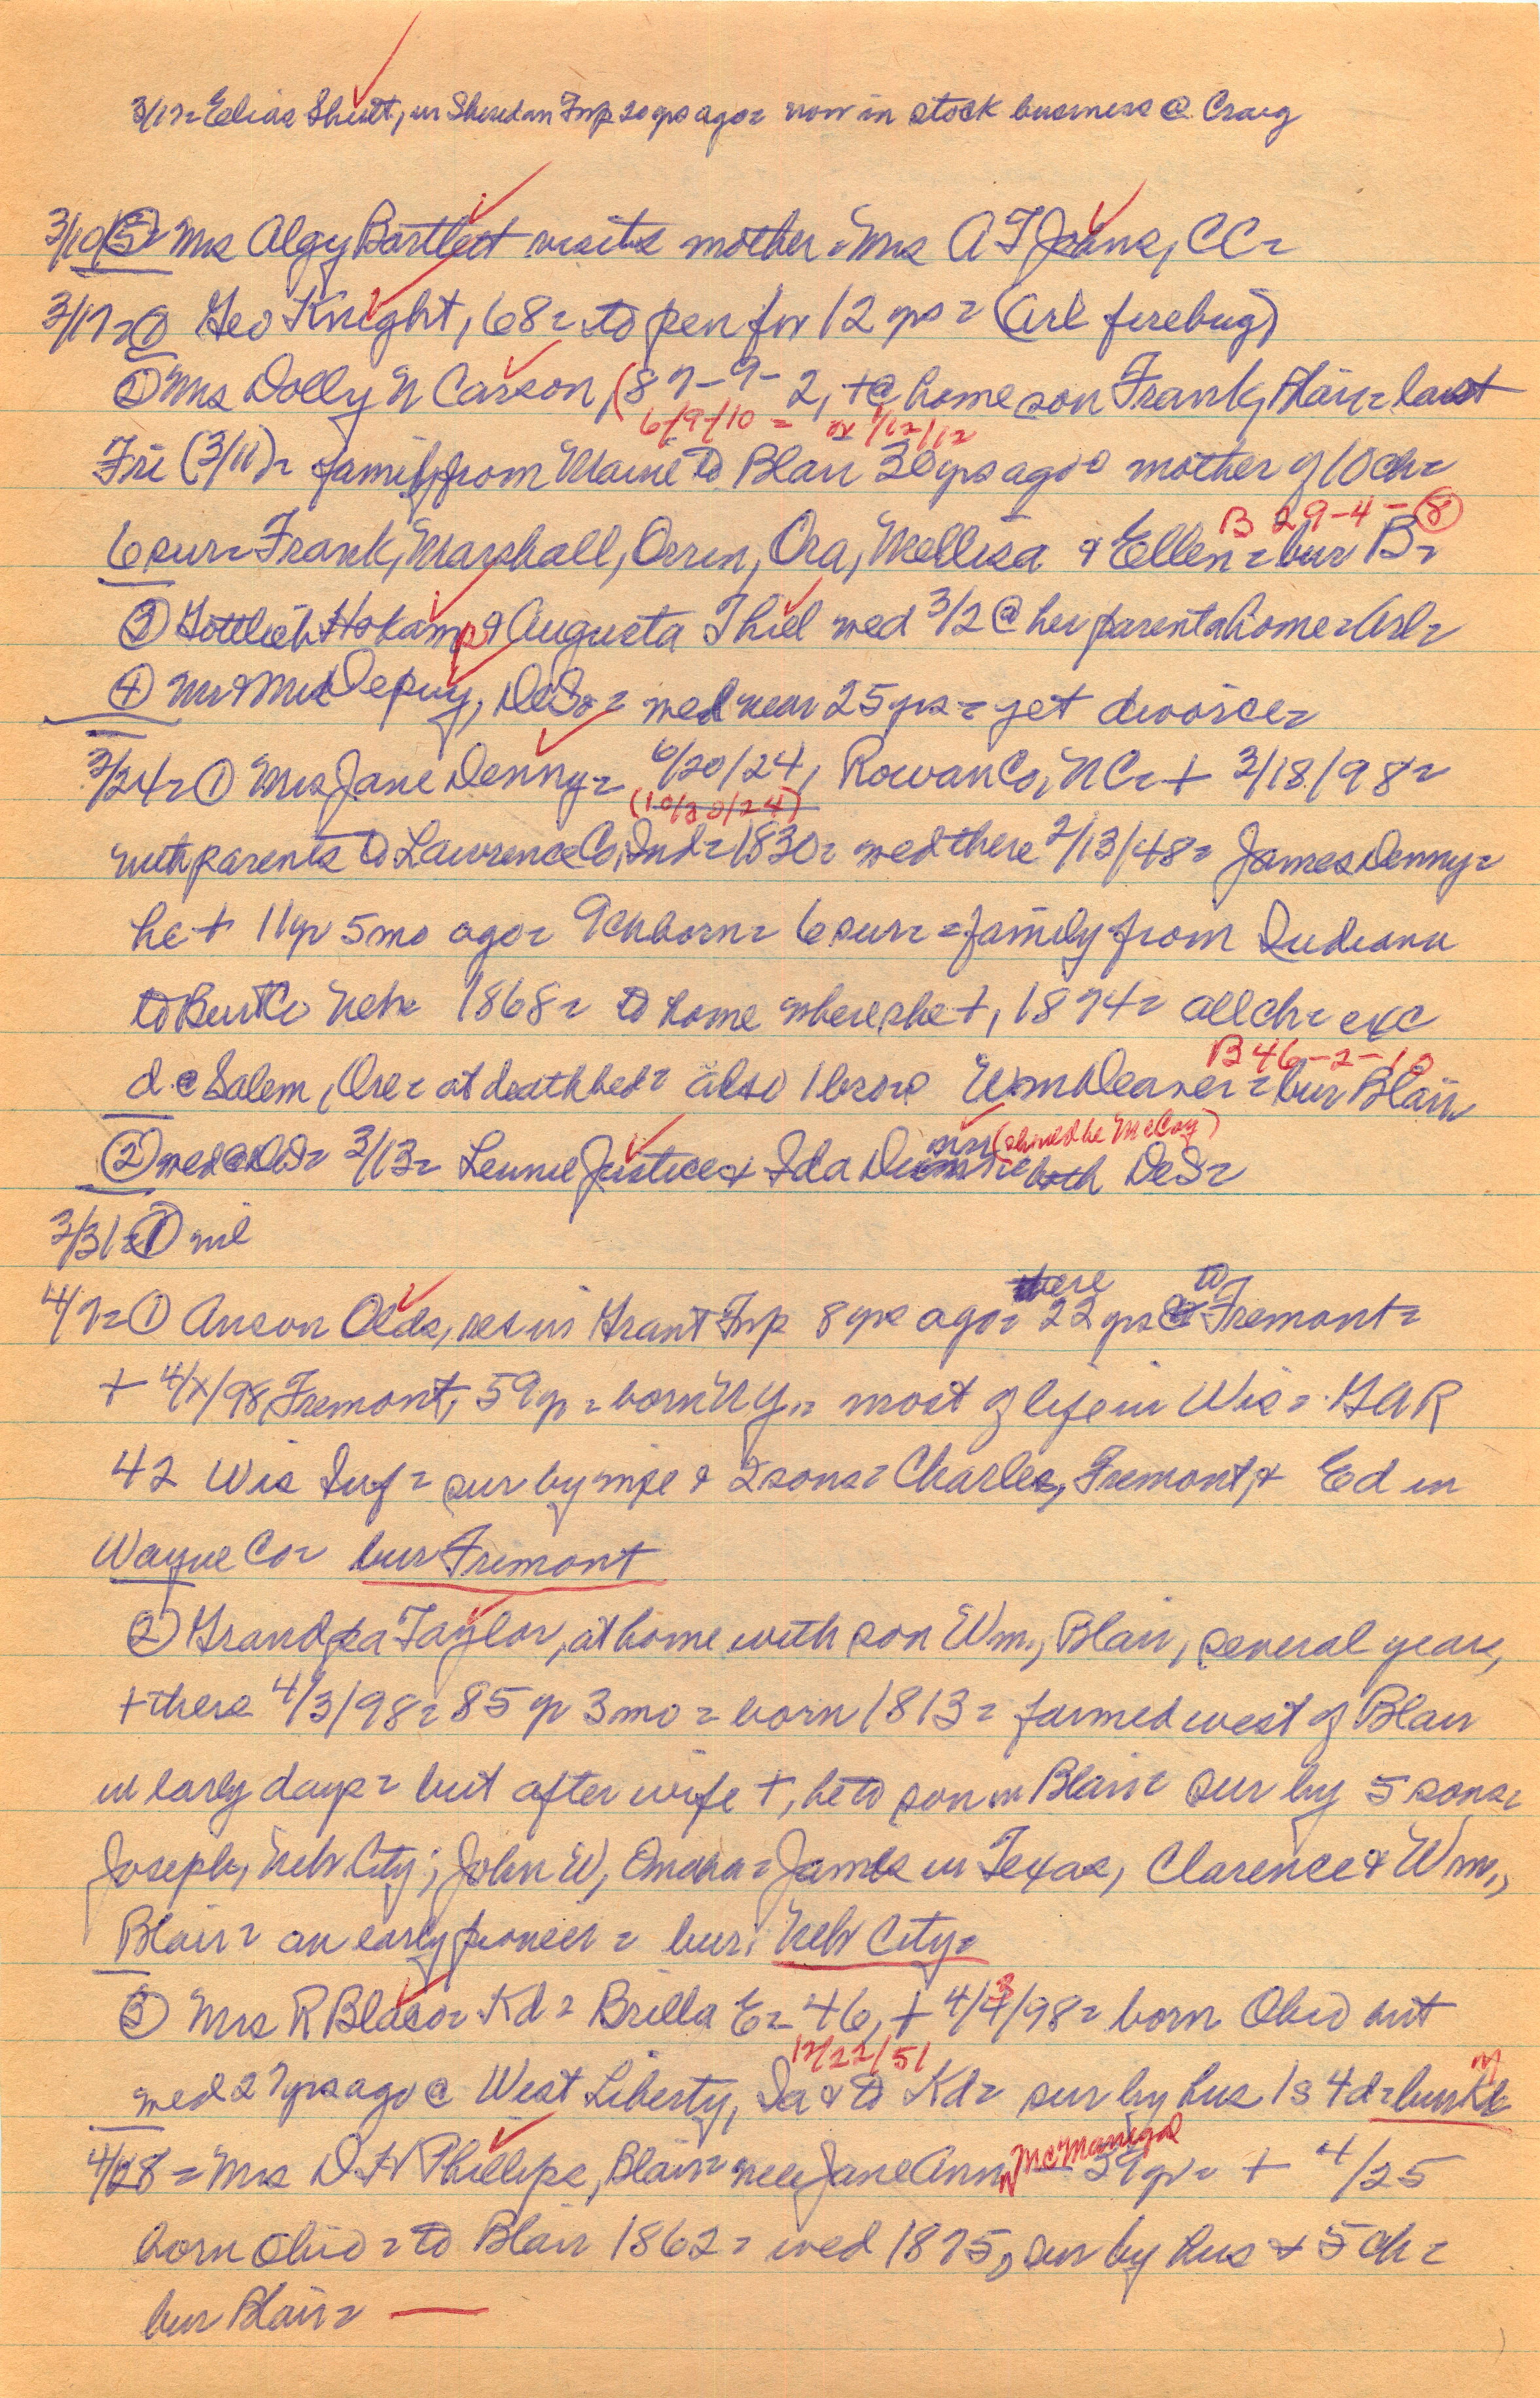 3/17= Elias Shutt, in Sheridan Twp 20 yrs ago= now in stock business @ Craig
3/10 (5)= Mrs Algy Bartlett visits mother= Mrs A T Johns, CC=
3/17= (1) Geo Knight, 68= to pen for 12 yrs = (Arl firebug)
(2) Mrs Dolly N Carson, (87-9-2, + @ home son Frank, Blair= last
6/9/10 = or 1/12/12
Fri (3/11)= family from Maine to Blair 30 yrs ago= mother of 10 ch=
B 29-4-(8)
6 sur= Frank, Marshall, Orren, Ora, Mellisa & Ellen = bur B=
(3) Gottlieb Hokamp & Augusta Thiel wed 3/2 @ her parents home= Arl=
(4) Mr & Mrs Depuy, DeSo= wed near 25 yrs = get divorce=
3/24= (1) Mrs Jane Denny= 6/20/24, Rowan Co, NC= + 3/18/98=
(10/30/24)
with parents to Lawrence Co, Ind= 1830= wed there 2/13/48= James Denny=
he + 11 yr 5 mo ago= 9 ch born= 6 sur= = family from Indiana
to Burt Co Neb= 1868= to home where she +, 1874= all ch= exc
B 46-2-10
d @ Salem, Ore= at deathbed= also 1 bro= Wm Weaver= bur Blair
(2) wed @ DeS= 3/13= Lennie Justice & Ida both DeS=
(should be McCoy)
3/31= (1) nil
4/7= (1) Anson Olds, res in Grant Twp 8 yrs ago= there 22 yrs to Fremont=
+ 4/x/98 Fremont, 59 yr = born N Y,= most of life in Wis = GAR
42 Wis Inf = sur by wife & 2 sons= Charles, Fremont, & Ed in
Wayne Co= bur Fremont
(2) Grandpa Taylor, at home with son Wm., Blair, several years,
+ there 4/3/98= 85 yr 3 mo = born 1813= farmed west of Blair
in early days= but after wife +, he to son in Blair= sur by 5 sons=
Joseph, Neb City; John W, Omaha= James in Texas, Clarence & Wm.,
Blair= an early pioneer = bur: Neb City=
(3) Mrs R Blaco= Kd= Brilla E= 46, + 4/3/98= born Ohio
12/22/51
wed 27 yrs ago @ West Liberty, Ia & to Kd= sur by hus 1s 4d= bur Kd
4/28 = Mrs D H Phillips, Blair= nee Jane Ann McManigal 59 yr= + 4/25
born Ohio = to Blair 1862= wed 1875, sur by hus & 5 ch=
bur Blair= —